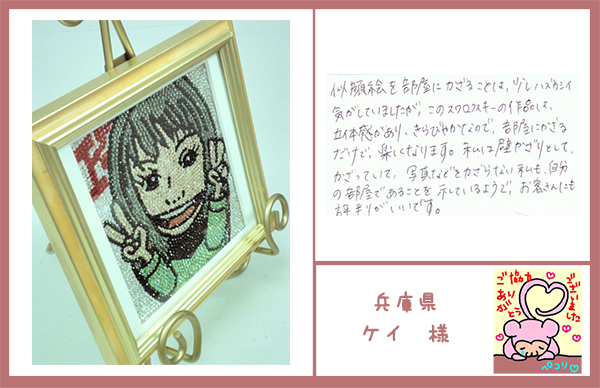 似顔絵を部屋にかざることは、少しハズカシイ
気がしていましたが、このスワロフスキーの作品は、
立体感があり、きらびやかなので、部屋にかざる
だけで、楽しくなります。私は壁かざりとして、
かざっていて、写真などをかざらない私も、自分
の部屋であることを示しているようで、お客さんにも
評判がいいです。
兵庫県
ケイ 様
ご協力
ありがとう
ございました
ペコリ